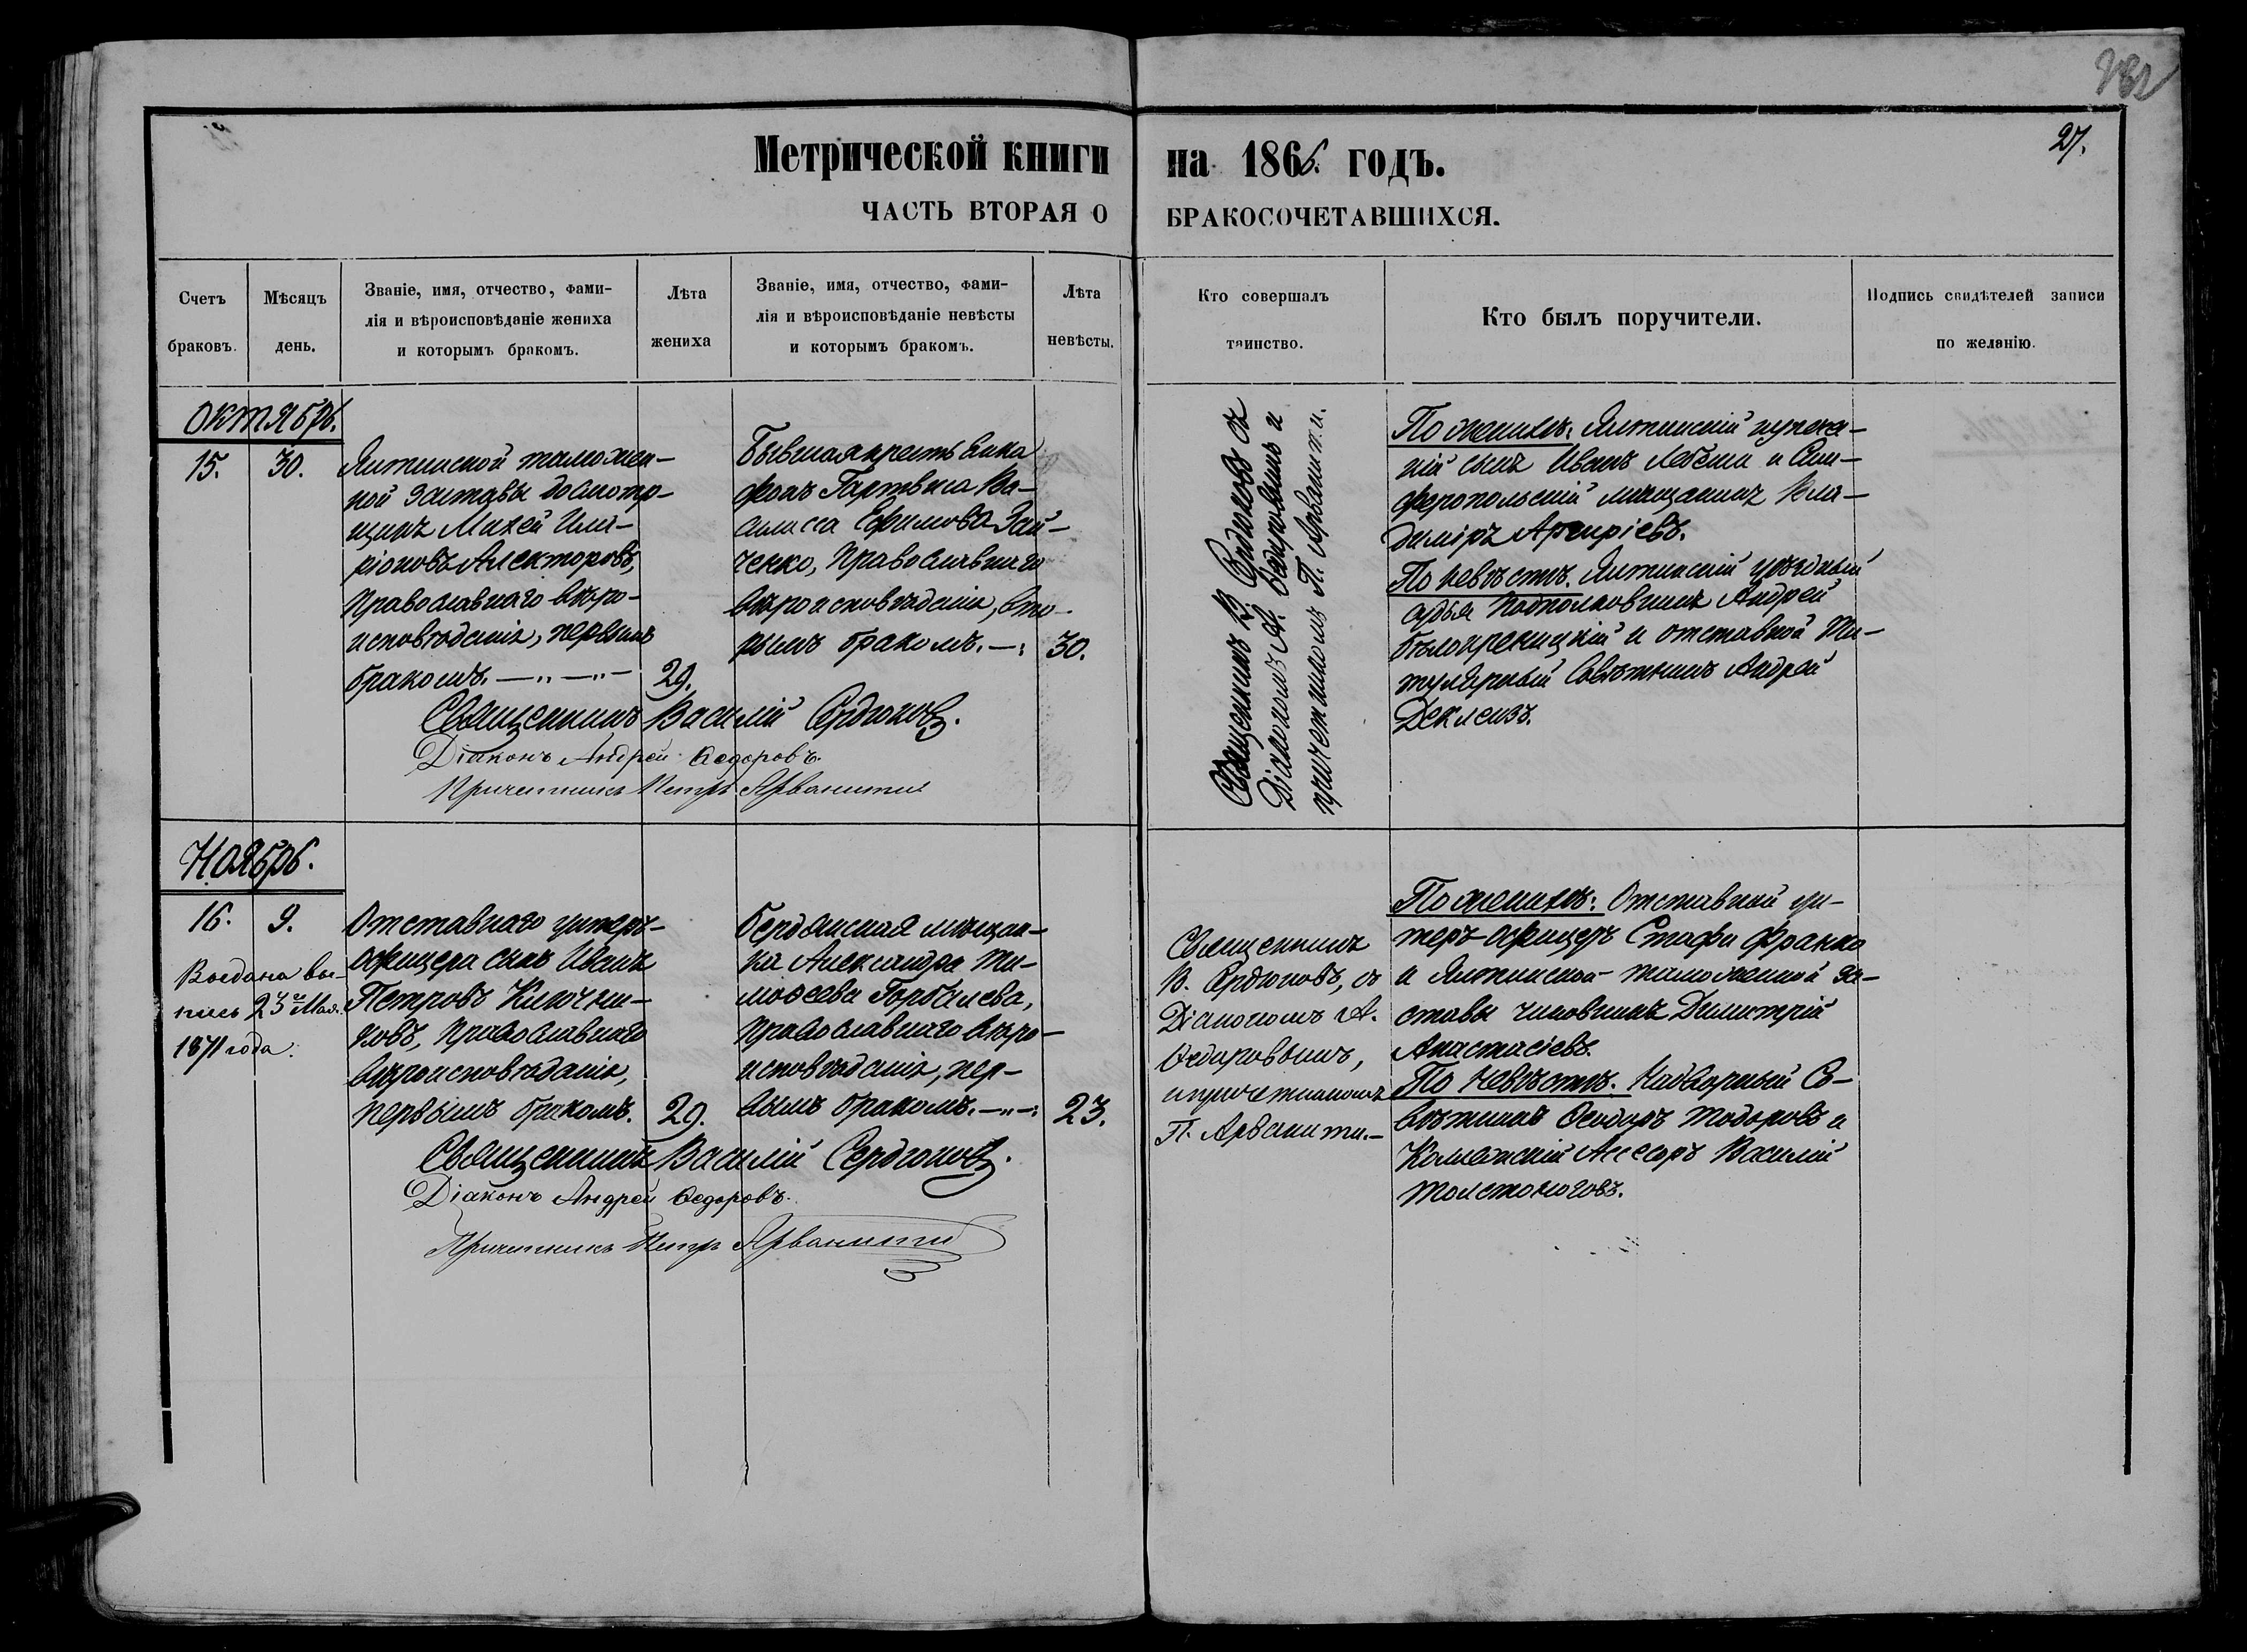 27.
Метрической книги на 1866. годъ.
ЧАСТЬ ВТОРАЯ О БРАКОСОЧЕТАВШИХСЯ.
Счетъ
браковъ.
Мѣсяцъ
день.
Званіе, имя, отчество, фами-
лія и вѣроисповѣданіе жениха
и которымъ бракомъ.
Лѣта
жениха
Званіе, имя, отчество, фами-
лія и вѣроисповѣданіе невѣсты
и которымъ бракомъ.
Лѣта
невѣсты.
Кто совершалъ
таинство.
Кто былъ поручители.
Подпись свидѣтелей записи
по желанію.
Октябрь.
15.
30.
Ялтинской таможен-
ной заставы досмотр-
щикъ Михей Ила-
ріоновъ Алекторовъ,
православнаго вѣро-
исповѣданія, первымъ
бракомъ. —„—„—
29.
Бывшая крестьянка
Гартвиса Ва-
силиса Ефимова Зай-
ченко, православнаго
вѣроисповѣданія, вто-
рымъ бракомъ. —:
30.
Священникъ В. Сердюковъ съ
Діакономъ А. Ѳедоровымъ и
причетникомъ П. Арванити.
По женихѣ: Ялтинскій купече-
скій сынъ Иванъ и Сим-
феропольскій мѣщанинъ Вла-
диміръ Аргиріевъ.
По невѣстѣ. Ялтинскій уѣздный
судья Подполковникъ Андрей
Бѣлокреницкій и отставной Ти-
тулярный Совѣтникъ Андрей
Деклезъ.
Священникъ Василій Сердюковъ.
Діаконъ Андрей Ѳедоровъ.
Причетникъ Петръ Арванити
Ноябрь.
16.
9.
Выдана вы-
пись 23го Мая
1871 года.
Отставнаго унтеръ-
офицера сынъ Иванъ
Петровъ Ключни-
ковъ, православнаго
вѣроисповѣданія,
первымъ бракомъ.
29.
Бердянская мѣщан-
ка Александра Ти-
моѳеева Горбалева,
православнаго вѣро-
исповѣданія, пер-
вымъ бракомъ. —„—:
23.
Священникъ
В. Сердюковъ, съ
Діакономъ А.
Ѳедоровымъ,
и причетникомъ
П. Арванити.—
По женихѣ: Отставной ун-
теръ-офицеръ Стафи Франко
и Ялтинской таможенной за-
ставы чиновникъ Димитрій
Анастасіевъ.
По невѣстѣ. Надворный Со-
вѣтникъ Ѳеодоръ Тодоровъ и
Коллежскій Ассесоръ Василій
Толстоноговъ.
Священникъ Василій Сердюковъ.
Діаконъ Андрей Ѳедоровъ.
Причетникъ Петръ Арванити